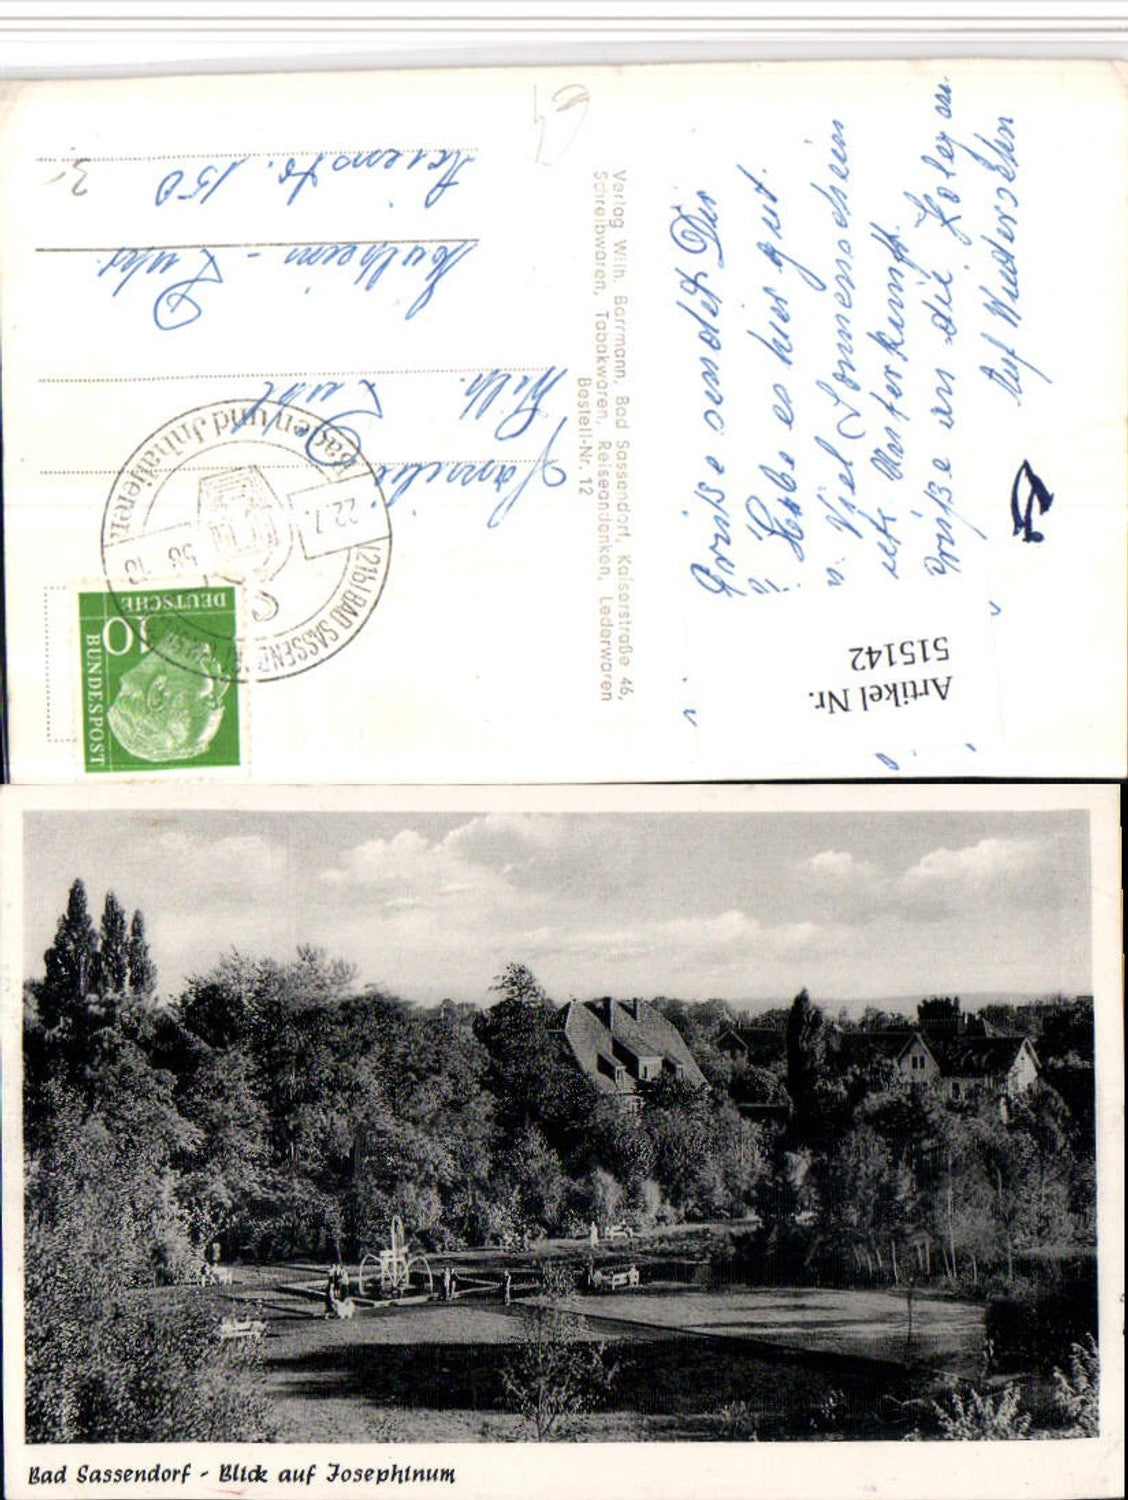 Grüße sendet Dir
Habe es hier gut.
u. Viel Sonnenschein
Unterkunft.
Grüße an die Koleg en
Auf Wiedersehn
Artikel Nr.
515142
Verlag Wilh. Borrmann, Bad Sassendorf, Kaiserstraße 46,
Schreibwaren, Tabakwaren, Reiseandenken, Lederwaren
Bestell-Nr. 12
DEUTSCHE
BUNDESPOST
10
(21b) BAD SASSENDORF
22.7.
58-18
Baden und Inhalieren
Familie
Wilh.
Mülheim - Ruhr
150
Bad Sassendorf - Blick auf Josephinum